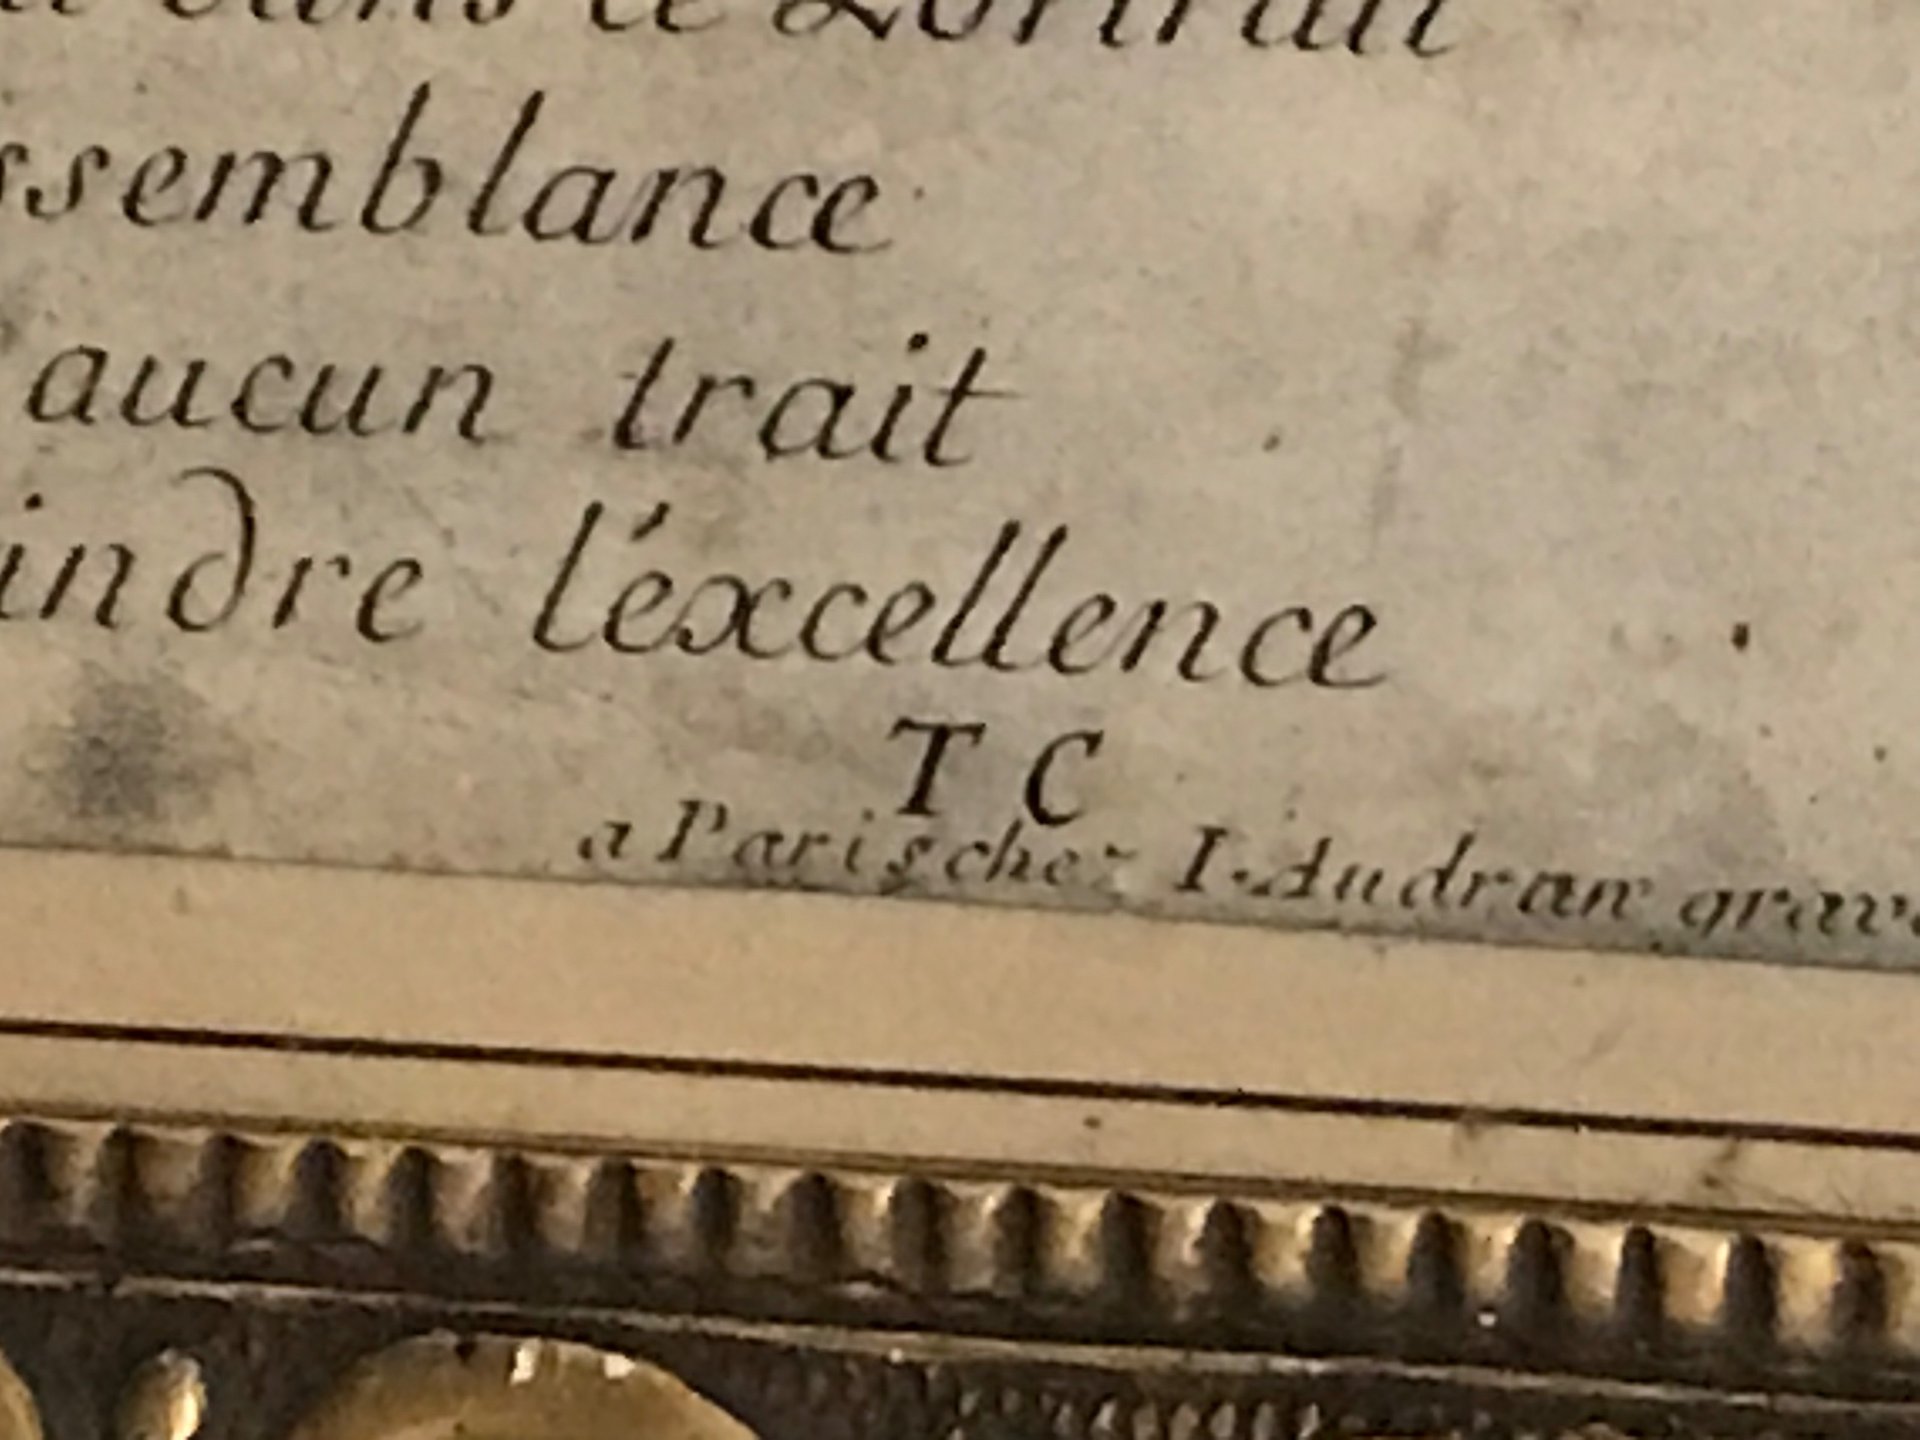 dans le Portrait
ssemblance
aucun trait
indre l'éxcellence
T C
a Paris chez I. Audran grav